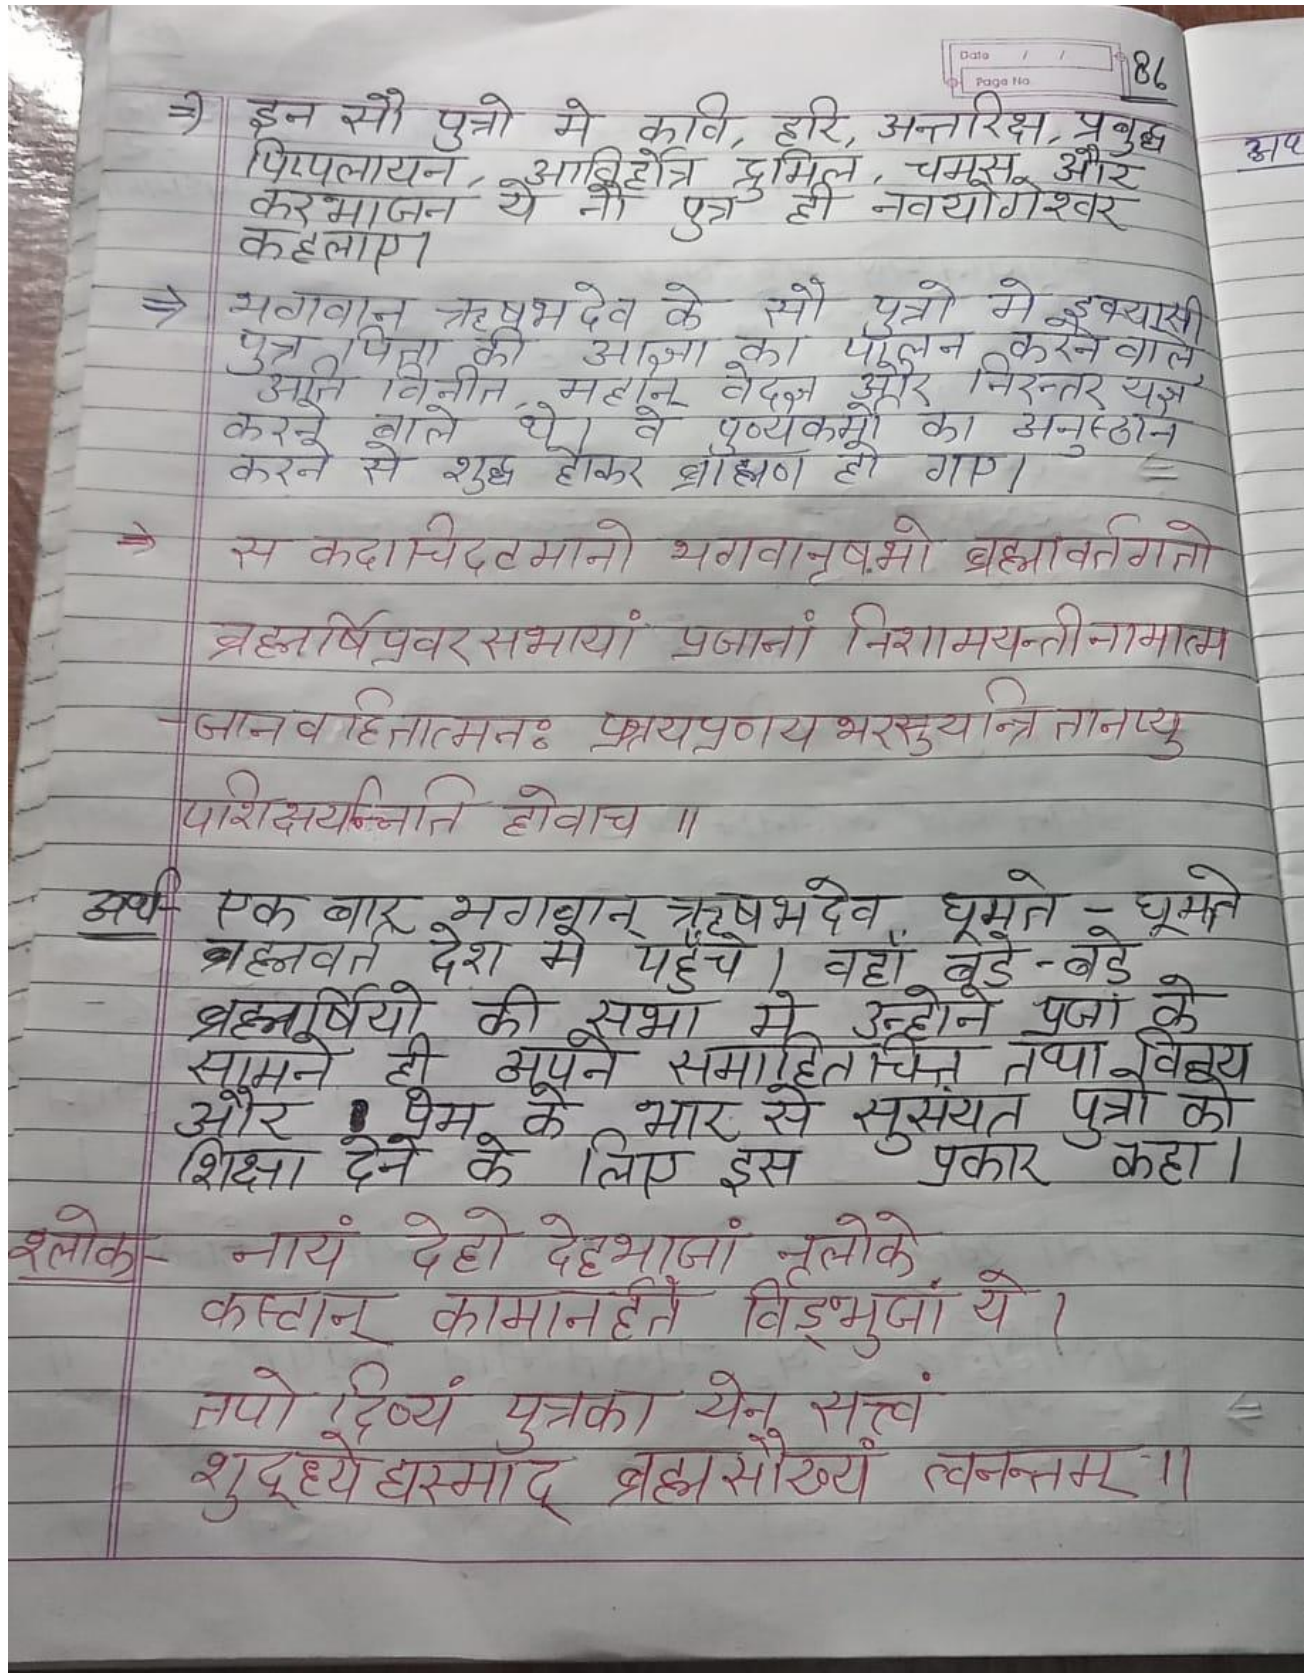 Date / /
Page No.
86
⇒ इन सौ पुत्रो मे कवि, हरि, अन्तरिक्ष, प्रबुद्ध
पिप्पलायन, आविर्होत्र द्रुमिल, चमस और
करभाजन ये नौ पुत्र ही नवयोगेश्वर
कहलाए।
⇒ भगवान ऋषभदेव के सौ पुत्रो मे इक्यासी
पुत्र पिता की आज्ञा का पालन करने वाले,
अति विनीत, महान् वेदज्ञ और निरन्तर यज्ञ
करने वाले थे। वे पुण्यकर्मो का अनुस्ठान
करने से शुद्ध होकर ब्राह्मण हो गए।
⇒ स कदाचिदटमानो भगवानृषभो ब्रह्मावर्तगतो
ब्रह्मर्षिप्रवरसभायां प्रजानां निशामयन्तीनामात्म
-जानवहितात्मनः प्रश्रयप्रणयभरसुयन्त्रितानप्यु
पशिक्षयन्निति होवाच ॥
अर्थ- एक बार भगवान् ऋषभदेव घूमते - घूमते
ब्रह्मवर्त देश मे पहुँचे। वहाँ बडे-बडे
ब्रह्मर्षियो की सभा मे उन्होने प्रजा के
सामने ही अपने समाहितचित्त तथा विनय
और प्रेम के भार से सुसंयत पुत्रो को
शिक्षा देने के लिए इस प्रकार कहा।
श्लोक- नायं देहो देहभाजां नृलोके
कस्टान् कामानर्हते विड्भुजां ये।
तपो दिव्यं पुत्रका येन सत्त्वं
शुद्ध्येद्यस्माद् ब्रह्मसौख्यं त्वनन्तम् ॥